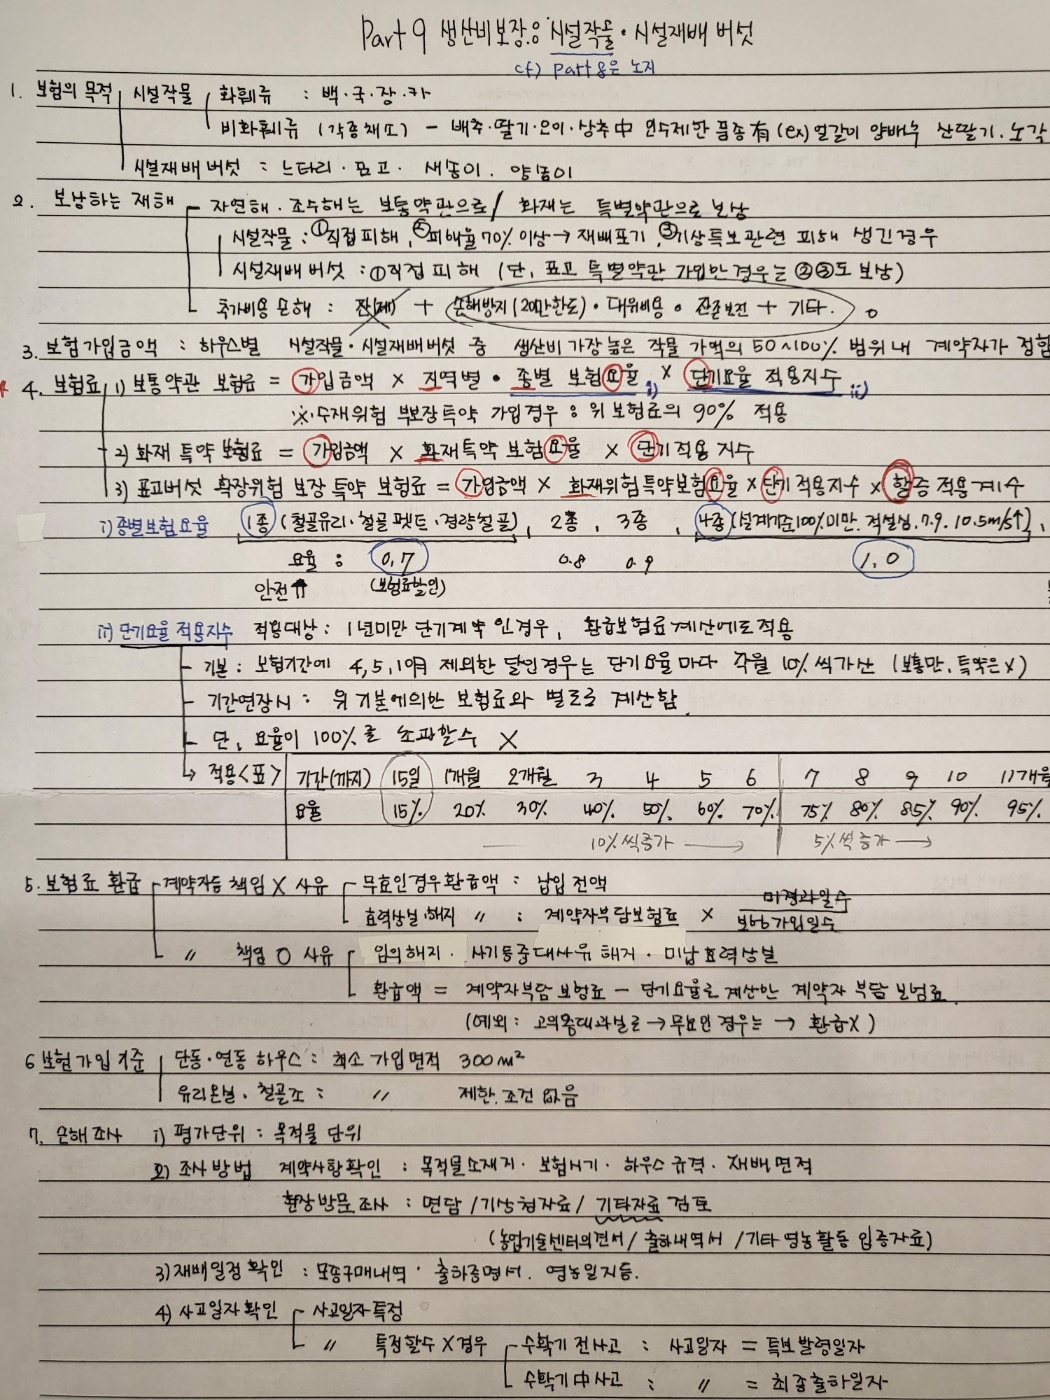 Part 9 생산비보장ㅇ 시설작물·시설재배 버섯
cf) part 8은 노지
1. 보험의 목적 시설작물 화훼류 : 백·국·장·카
비화훼류 (각종채소) - 배추·딸기·오이·상추中 인수제한 품종有 (ex) 얼갈이 양배추 산딸기. 노각
시설재배 버섯 : 느타리·표고·새송이. 양송이
2. 보상하는 재해 자연해·조수해는 보통약관으로 / 화재는 특별약관으로 보상
시설작물 : ①직접피해, ②피해율 70% 이상→ 재배포기, ③기상특보관련 피해 생긴경우
시설재배 버섯 : ①직접 피해 (단, 표고 특별약관 가입한 경우는 ②③도 보상)
추가비용 손해 : 잔(제) + 손해방지(20만한도)·대위비용·잔존보전 + 기타.
3. 보험가입금액 : 하우스별 시설작물·시설재배버섯 중 생산비 가장 높은 작물 가액의 50~100% 범위내 계약자가 정함
4. 보험료 1) 보통약관 보험료 = 가입금액 × 지역별·종별 보험요율 i) × 단기요율 적용지수 ii)
※ 수재위험 부보장특약 가입경우 : 위 보험료의 90% 적용
2) 화재 특약 보험료 = 가입금액 × 화재특약 보험요율 × 단기적용 지수
3) 표고버섯 확장위험 보장 특약 보험료 = 가입금액 × 화재위험특약보험요율 × 단기적용지수 × 할증 적용계수
i) 종별보험요율 1종 (철골유리·철골펫트·경량철골), 2종, 3종, 4종 (설계기준100%미만. 적설심.7.9. 10.5m/s↑),
요율 : 0.7 0.8 0.9 1.0
안전↑ (보험료할인)
ii) 단기요율 적용지수 적용대상 : 1년미만 단기계약 인경우, 환급보험료계산에도적용
기본 : 보험기간에 4,5,10월 제외한 달인경우는 단기요율마다 각월 10%씩가산 (보통만, 특약은×)
기간연장시 : 위 기본에의한 보험료와 별도로 계산함
단, 요율이 100%를 초과할수 ×
적용<표> 기간(까지) 15일 1개월 2개월 3 4 5 6 7 8 9 10 11개월
요율 15% 20% 30% 40% 50% 60% 70% 75% 80% 85% 90% 95%
10%씩증가 → 5%씩증가 →
5. 보험료 환급 계약자등 책임 × 사유 무효인경우환급액 : 납입 전액
효력상실·해지 〃 : 계약자부담보험료 × 미경과일수
보험가입일수
〃 책임 O 사유 임의해지·사기등중대사유 해지·미납효력상실
환급액 = 계약자부담 보험료 - 단기요율로 계산한 계약자 부담 보험료
(예외 : 고의중대과실로→무효인 경우는 → 환급×)
6 보험가입기준 단동·연동 하우스 : 최소 가입면적 300m²
유리온실·철골조 : 〃 제한.조건 없음
7. 손해조사 1) 평가단위 : 목적물 단위
2) 조사방법 계약사항확인 : 목적물소재지·보험시기·하우스 규격·재배면적
현장방문조사 : 면담 / 기상청자료 / 기타자료 검토
(농업기술센터의견서 / 출하내역서 / 기타 영농활동 입증자료)
3) 재배일정확인 : 모종구매내역·출하증명서. 영농일지등.
4) 사고일자확인 사고일자특정
〃 특정할수×경우 수확기전사고 : 사고일자 = 특보발령일자
수확기中사고 : 〃 = 최종출하일자